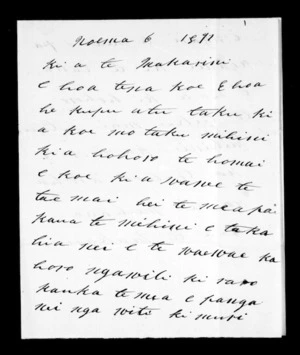 Noema 6 1871
Ki a te Makarini
E hoa tena koe E hoa
he kupu atu taku ki
a koe mo taku mihini
kia hohoro te homai
e koe kia wawe te
tae mai hei te mea pai
kana te mihini e taka
hia nei e te waewae ka
horo nga witi ki raro
kauka te mea e panga
nei nga witi ki muri